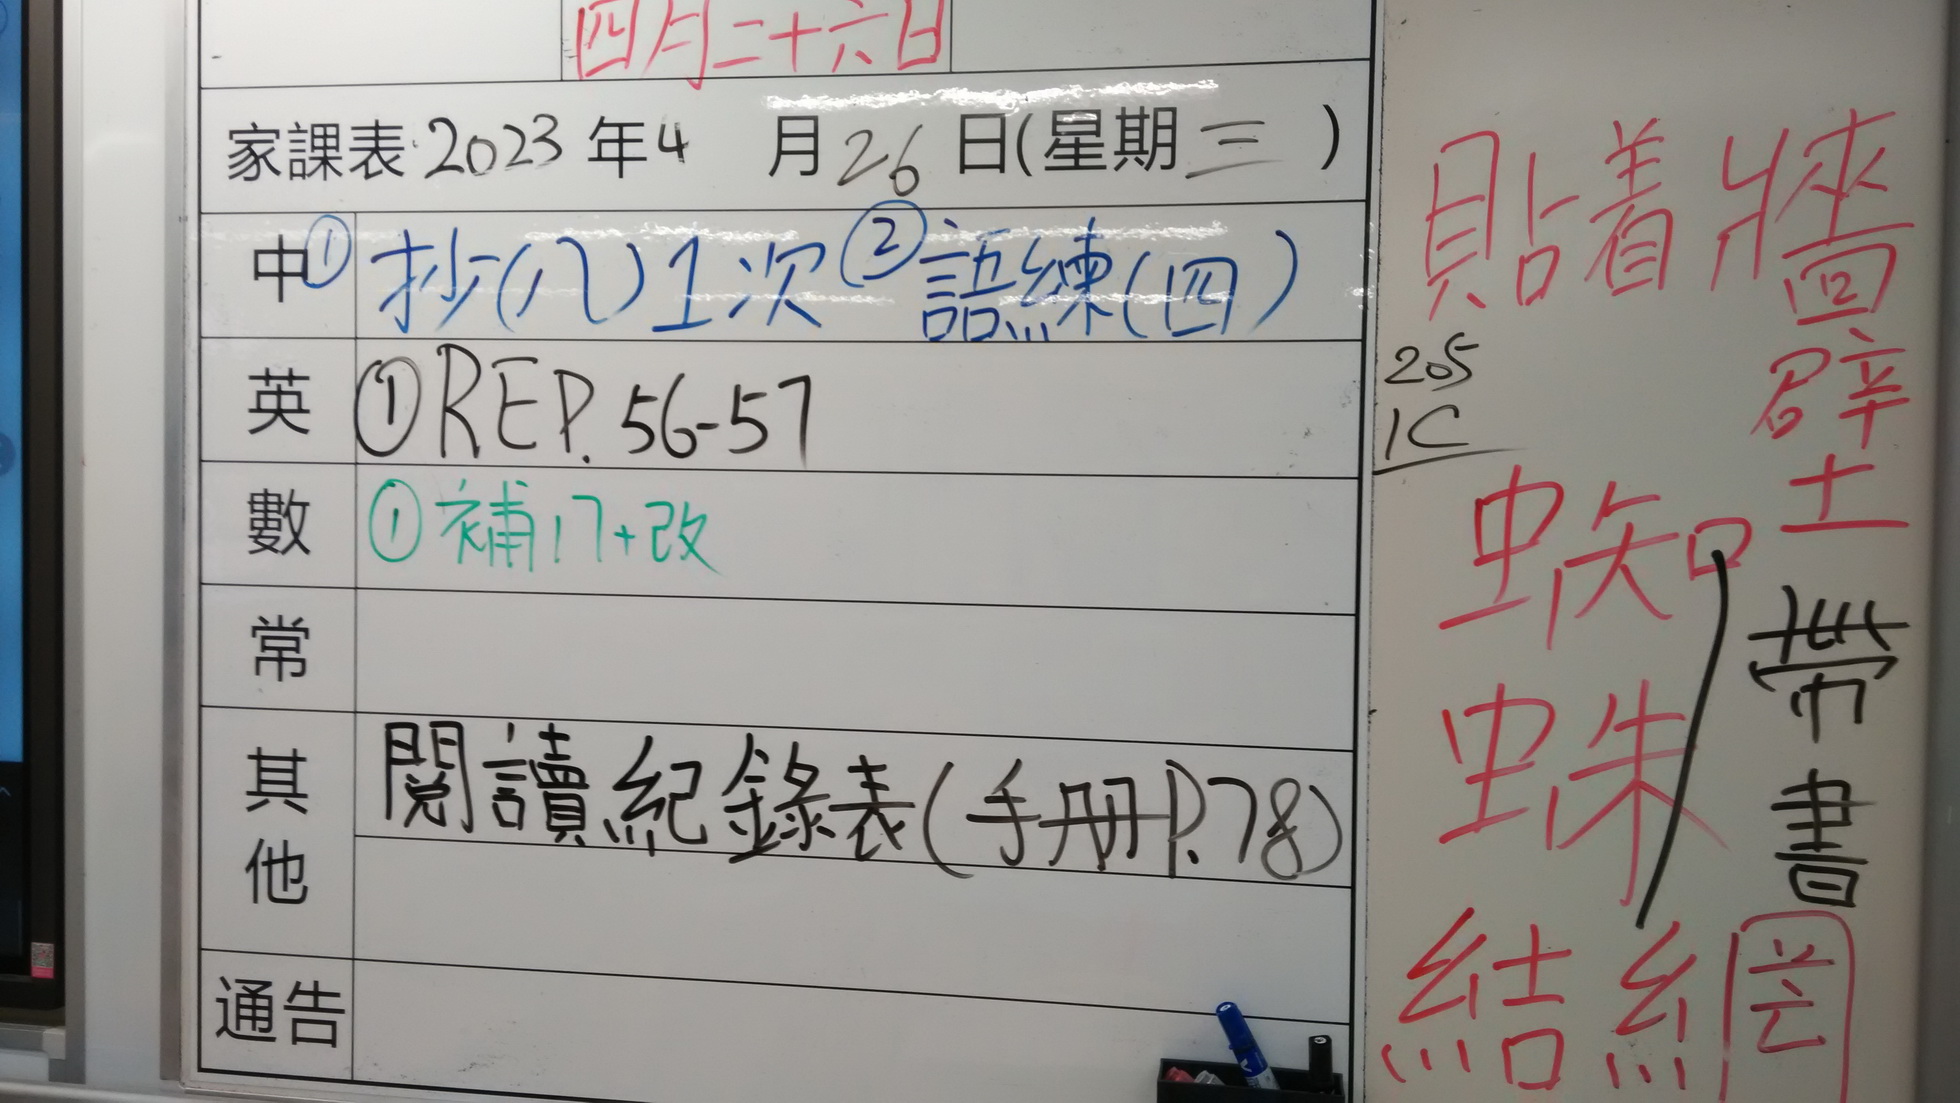 四月二十六日
家課表 2023 年 4 月 26 日(星期 三 )
中 ① 抄(八)1次 ② 語練(四)
英 ① RE P. 56-57
數 ① 補17+改
常
其他 閱讀紀錄表(手冊P.78)
通告
貼着牆壁
205
1C
蜘蛛
結網
帶書